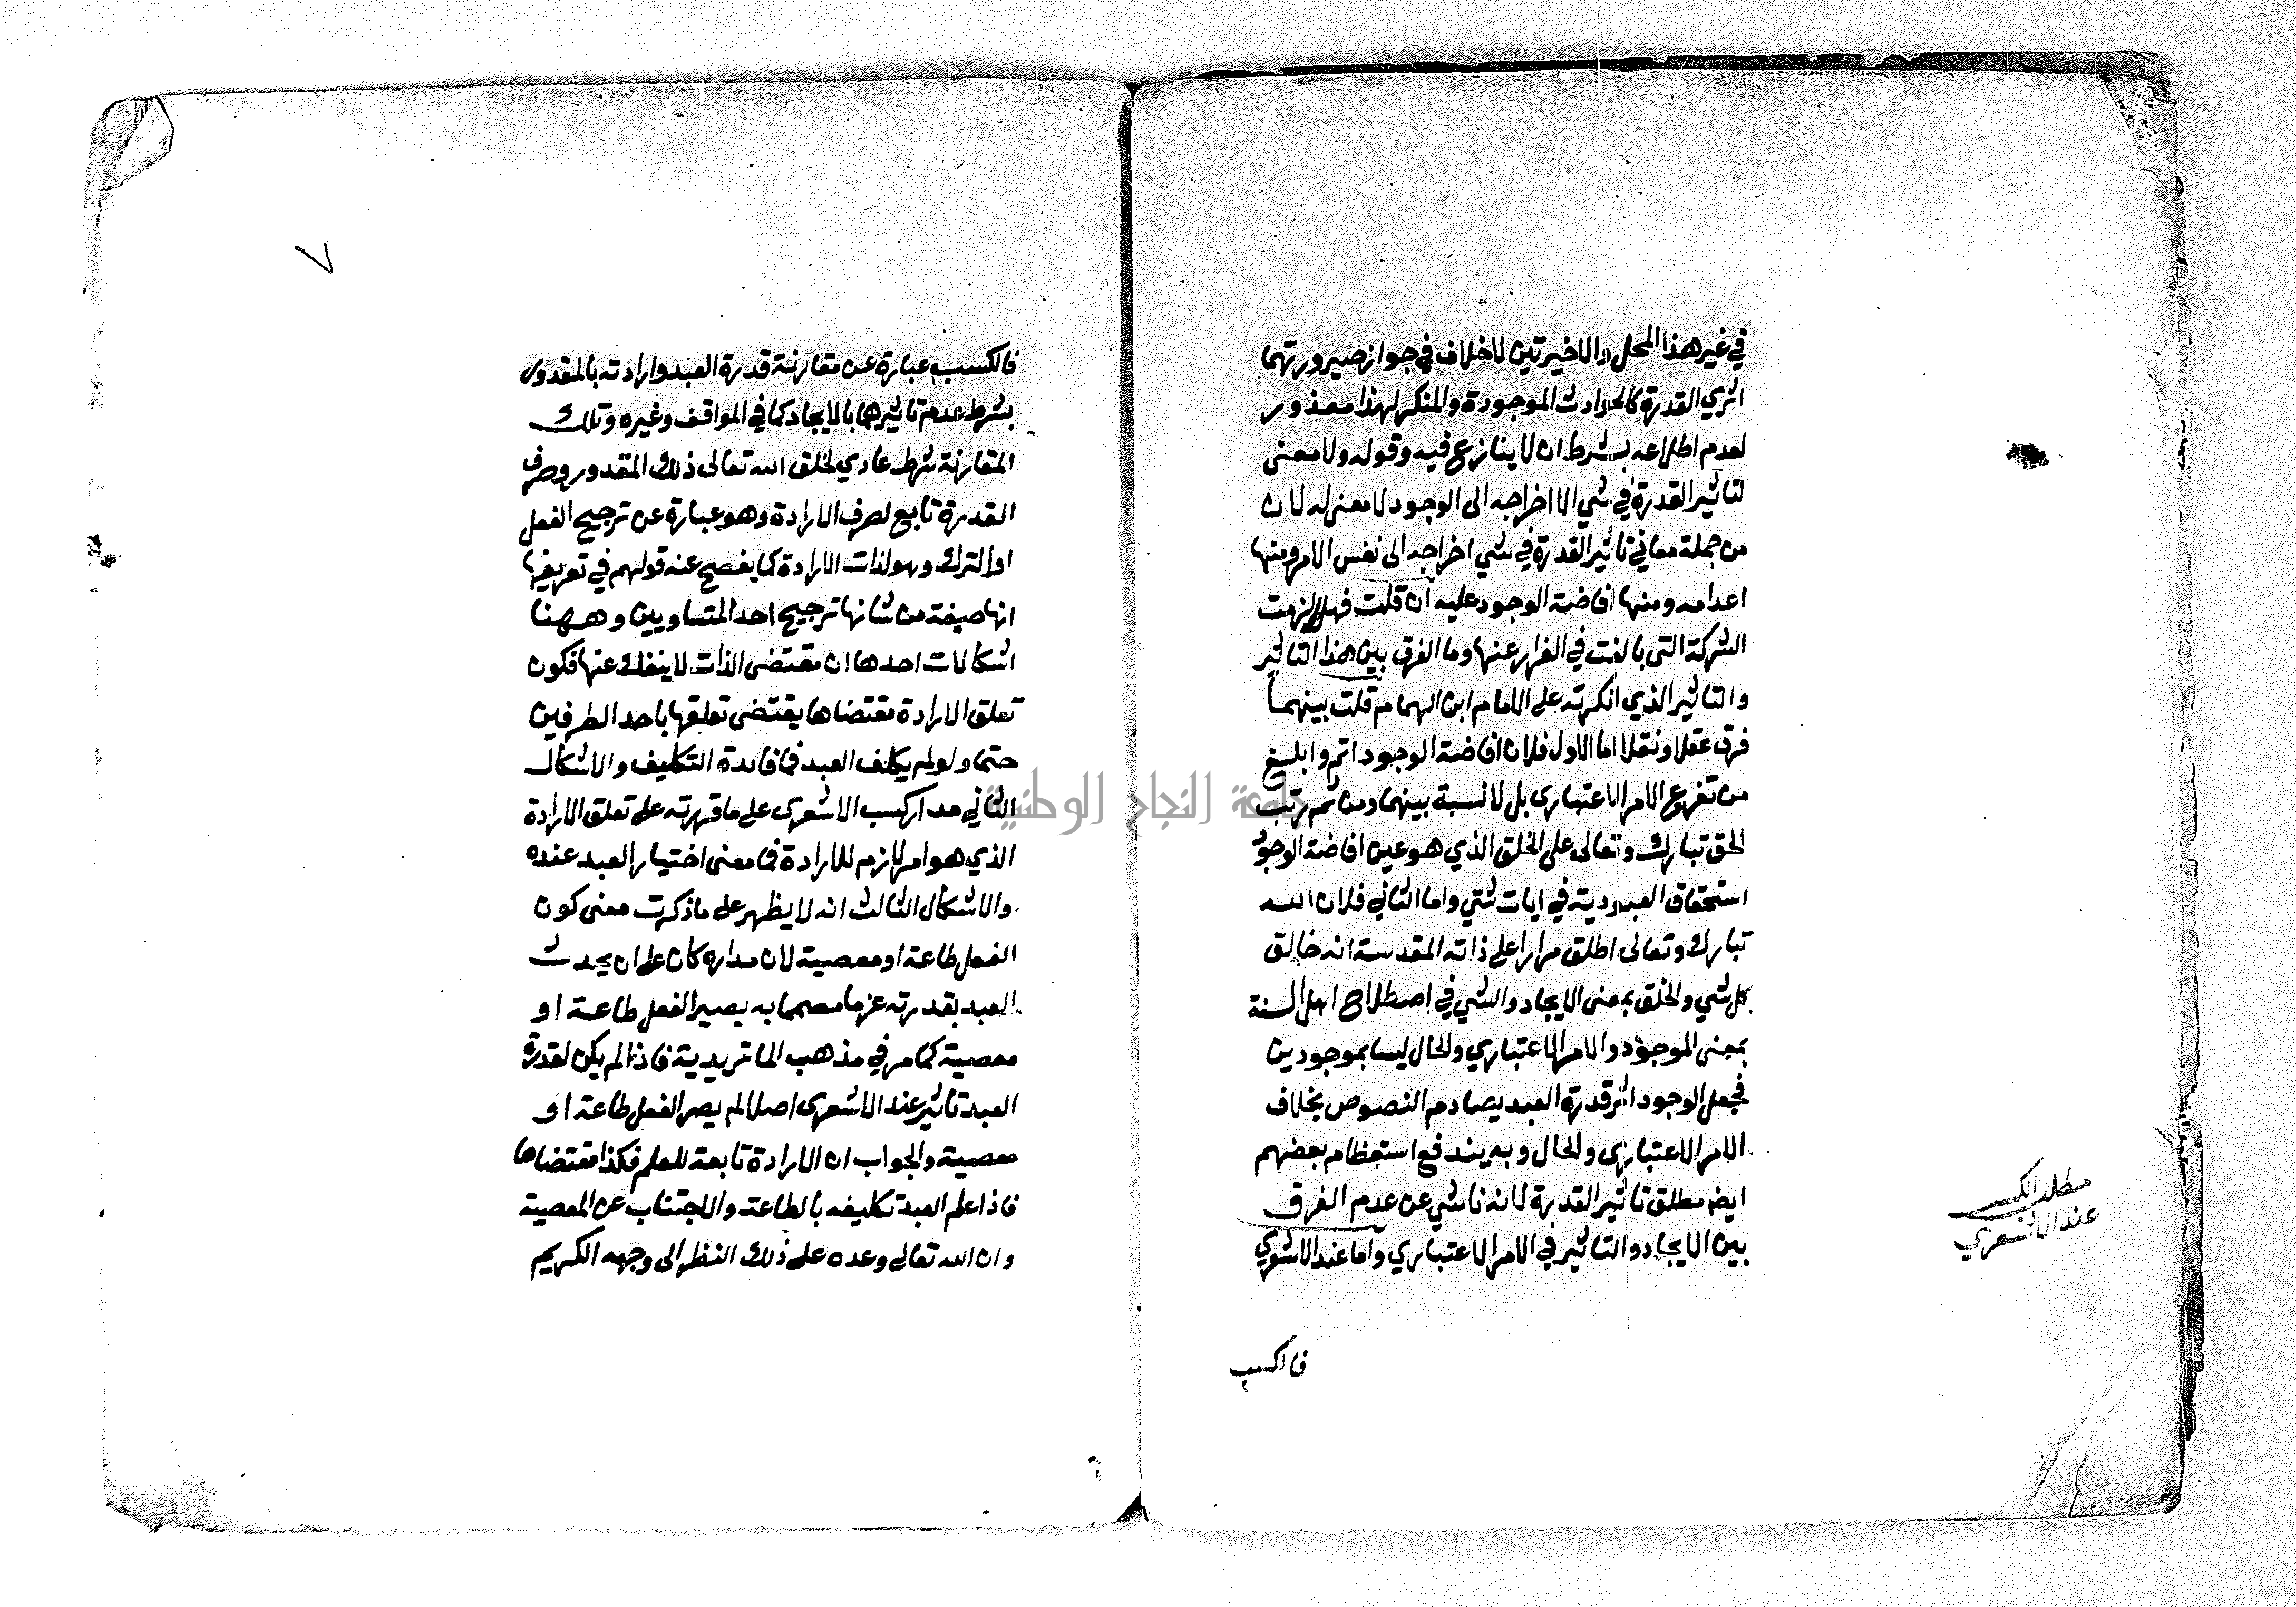 في غير هذا المحل والاخيرتين لا خلاف في جواز صيرورتهما
اثري القدرة كالحوادث الموجودة والمنكر لهذا معذور
لعدم اطلاعه بشرط ان لا ينازع فيه وقوله ولا معنى
لتاثير القدرة في شي الا اخراجه الى الوجود لا معنى له لان
من جملة معاني تاثير القدرة في شي اخراجه الى نفس الامر ومنها
اعدامه ومنها افاضة الوجود عليه ان قلت فهلا لزمت
الشركة التي بالغت في الفرار عنها وما الفرق بين هذا التاثير
والتاثير الذي انكرته على الامام ابن الهمام قلت بينهما
فرق عقلا ونقلا اما الاول فلان افاضة الوجود اتم وابلغ
من تفرع الامر الاعتباري بل لا نسبة بينهما ومن ثم رتب
الحق تبارك وتعالى على الخلق الذي هو عين افاضة الوجود
استحقاق العبودية في ايات شتي واما الثاني فلان الله
تبارك وتعالى اطلق مرارا على ذاته المقدسة انه خالق
كل شي والخلق بمعنى الايجاد والشي في اصطلاح اهل السنة
بمعنى الموجود والامر الاعتباري والحال ليسا بموجودين
فجعل الوجود اثر قدرة العبد يصادم النصوص بخلاف
الامر الاعتباري والحال وبه يندفع استعظام بعضهم
ايض مطلق تاثير القدرة لانه ناشي عن عدم الفرق
بين الايجاد والتاثير في الامر الاعتباري واما عند الاشعري
فالكسب
مطلب الكسب
عند الاشعري
٧
فالكسب عبارة عن مقارنة قدرة العبد وارادته بالمقدور
بشرط عدم تاثيرهما بالايجاد كما في المواقف وغيره وتلك
المقارنة شرط عادي لخلق الله تعالى ذلك المقدور وصرف
القدرة تابع لصرف الارادة وهو عبارة عن ترجيح الفعل
او الترك وهو لذات الارادة كما يفصح عنه قولهم في تعريفها
انها صفة من شانها ترجيح احد المتساويين وههنا
اشكالات احدها ان مقتضى الذات لا ينفك عنها فكون
تعلق الارادة مقتضاها يقتضى تعلقها باحد الطرفين
حتما ولو لم يكلف العبد فما فايدة التكليف والاشكال
الثاني مدار كسب الاشعرى على ما قررته على تعلق الارادة
الذي هو امر لازم للارادة فما معنى اختيار العبد عنده
والاشكال الثالث انه لا يظهر على ما ذكرت معنى كون
الفعل طاعة او معصية لان مداره كان على ان يحدث
العبد بقدرته عزما مصمما به يصير الفعل طاعة او
معصية كما مر في مذهب الماتريدية فاذا لم يكن لقدرة
العبد تاثير عند الاشعرى اصلا لم يصر الفعل طاعة او
معصية والجواب ان الارادة تابعة للعلم فكذا مقتضاها
فاذا علم العبد تكليفه بالطاعة والاجتناب عن المعصية
وان الله تعالى وعده على ذلك النظر الى وجهه الكريم
جامعة النجاح الوطنية